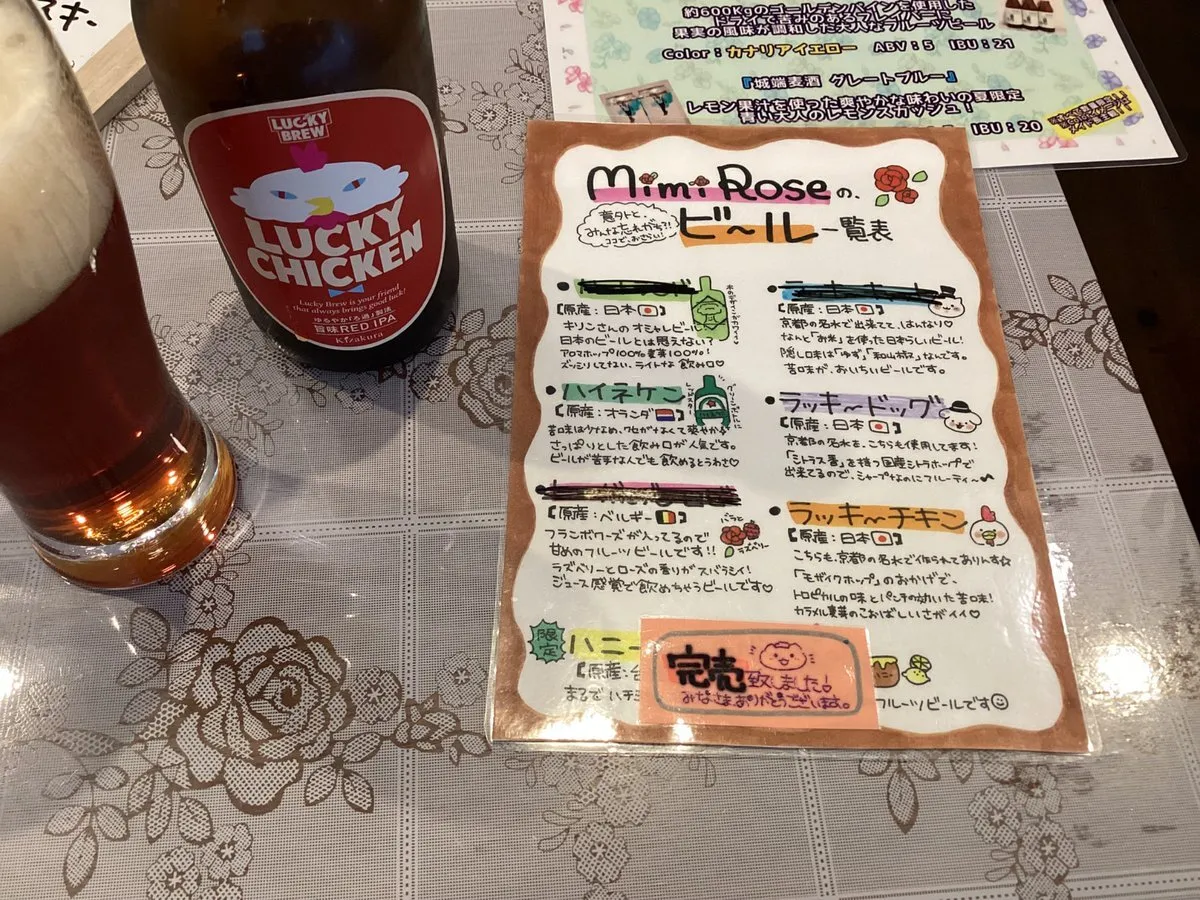 スキー
LUCKY BREW
LUCKY
CHICKEN
Lucky Brew is your friend
that always brings good luck!
ゆるやか「ろ過」製法
旨味RED IPA
Kizakura
約600Kgのゴールデンパインを使用した
果実の風味が調和した大人なフルーツビール
Color：カナリアイエロー ABV：5 IBU：21
『城端麦酒 グレートブルー』
レモン果汁を使った爽やかな味わいの夏限定
青い大人のレモンスカッシュ！
IBU：20
Mimi Roseの、
ビ〜ル一覧表
意外と、
みんな忘れがち?!
ココで、おさらい!
【原産：日本】
キリンさんのオシャレビール
日本のビールとは思えない？
アロマホップ100%麦芽100%！
ズッシリしてない、ライトな飲み口♡
・ハイネケン
【原産：オランダ】
さっぱりとした飲み口が人気です。
ビールが苦手な人でも飲めるとうわさ♡
【原産：ベルギー】
フランボワーズが入ってるので
甘めのフルーツビールです!!
ラズベリーとローズの香りがスバラシイ！
ジュース感覚で飲めちゃうビールです♡
バラと
ラズベリー
【原産：日本】
京都の名水で出来てて、はんなり♡
なんと「お米」を使った日本らしいビール！
隠し口味は「ゆず」「和山椒」なんです。
苦味が、おいちいビールです。
・ラッキ〜ドッグ
【原産：日本】
京都の名水を、こちらも使用してます！
「シトラス香」を持つ国産シトラホップで
出来てるので、シャープなのにフルーティ〜♪
・ラッキ〜チキン
【原産：日本】
こちらも、京都の名水で作られてありんす☆
「モザイクホップ」のおかげで、
トロピカルの味とパンチの効いた苦味！
カラメル麦芽のこおばしいさがイイ♡
限定
ハニー
【原産：台
まるでハチミ
フルーツビールです☺
完売致しました！
みなさまありがとうございます。